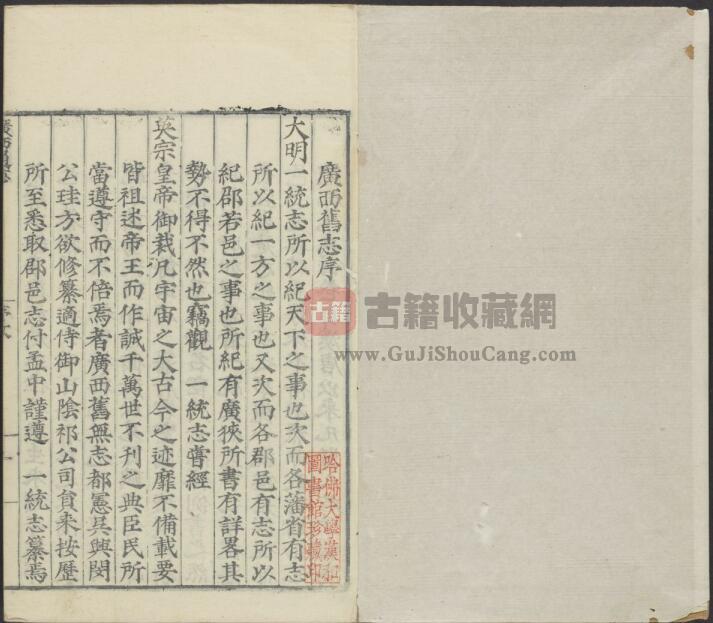 廣西舊志序
大明一統志所以紀天下之事也次而各藩省有志
所以紀一方之事也又次而各郡邑有志所以
紀郡若邑之事也所紀有廣狹所書有詳畧其
勢不得不然也竊觀 一統志嘗經
英宗皇帝御裁凡宇宙之大古今之迹靡不備載要
皆祖述帝王而作誠千萬世不刊之典臣民所
當遵守而不倍焉者廣西舊無志都憲吳興閔
公珪方欲修纂適侍御山陰祁公司員来按歷
所至悉取郡邑志付孟中謹遵 一統志纂焉
哈佛大學漢和
圖書館珍藏印
古籍 古籍收藏網
www.GuJiShouCang.com